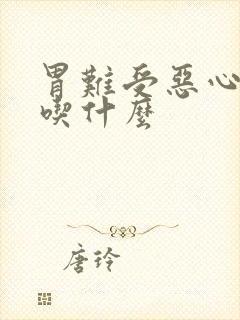 胃難受惡心
喫什麽
唐玲